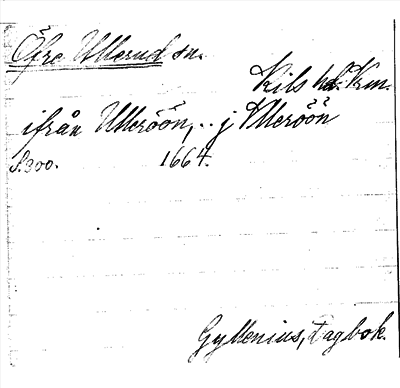 Öfre Ullerud sn.
Kils hd. Km.
ifrån Ulleröön, .. j Ulleröön
S. 300. 1664.
Gyllenius, Dagbok.